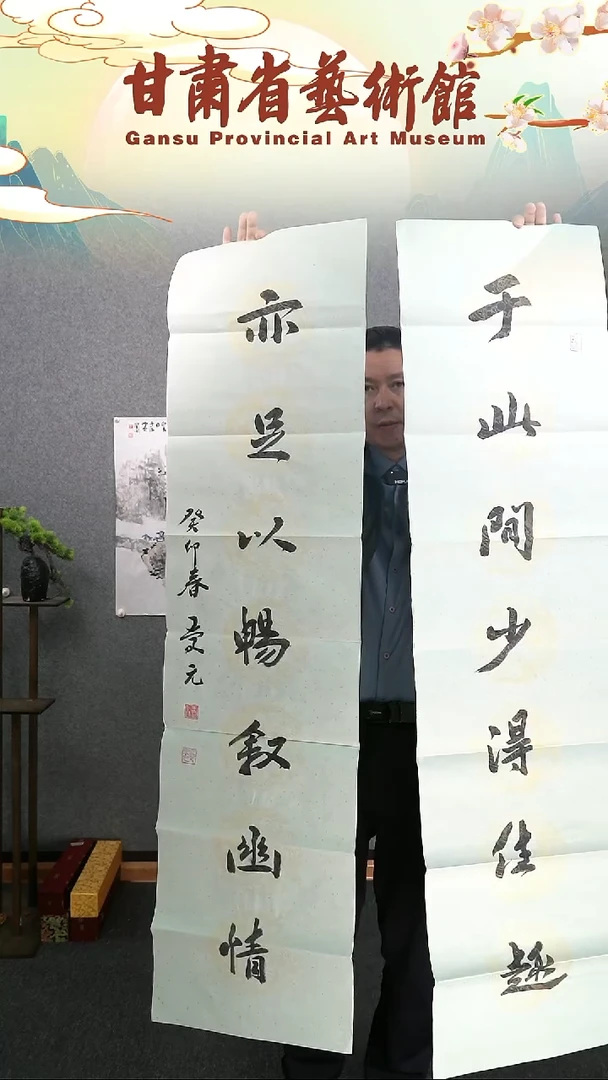 甘肅省藝術館
Gansu Provincial Art Museum
于此間少得佳趣
亦足以暢叙幽情
癸卯春 受元